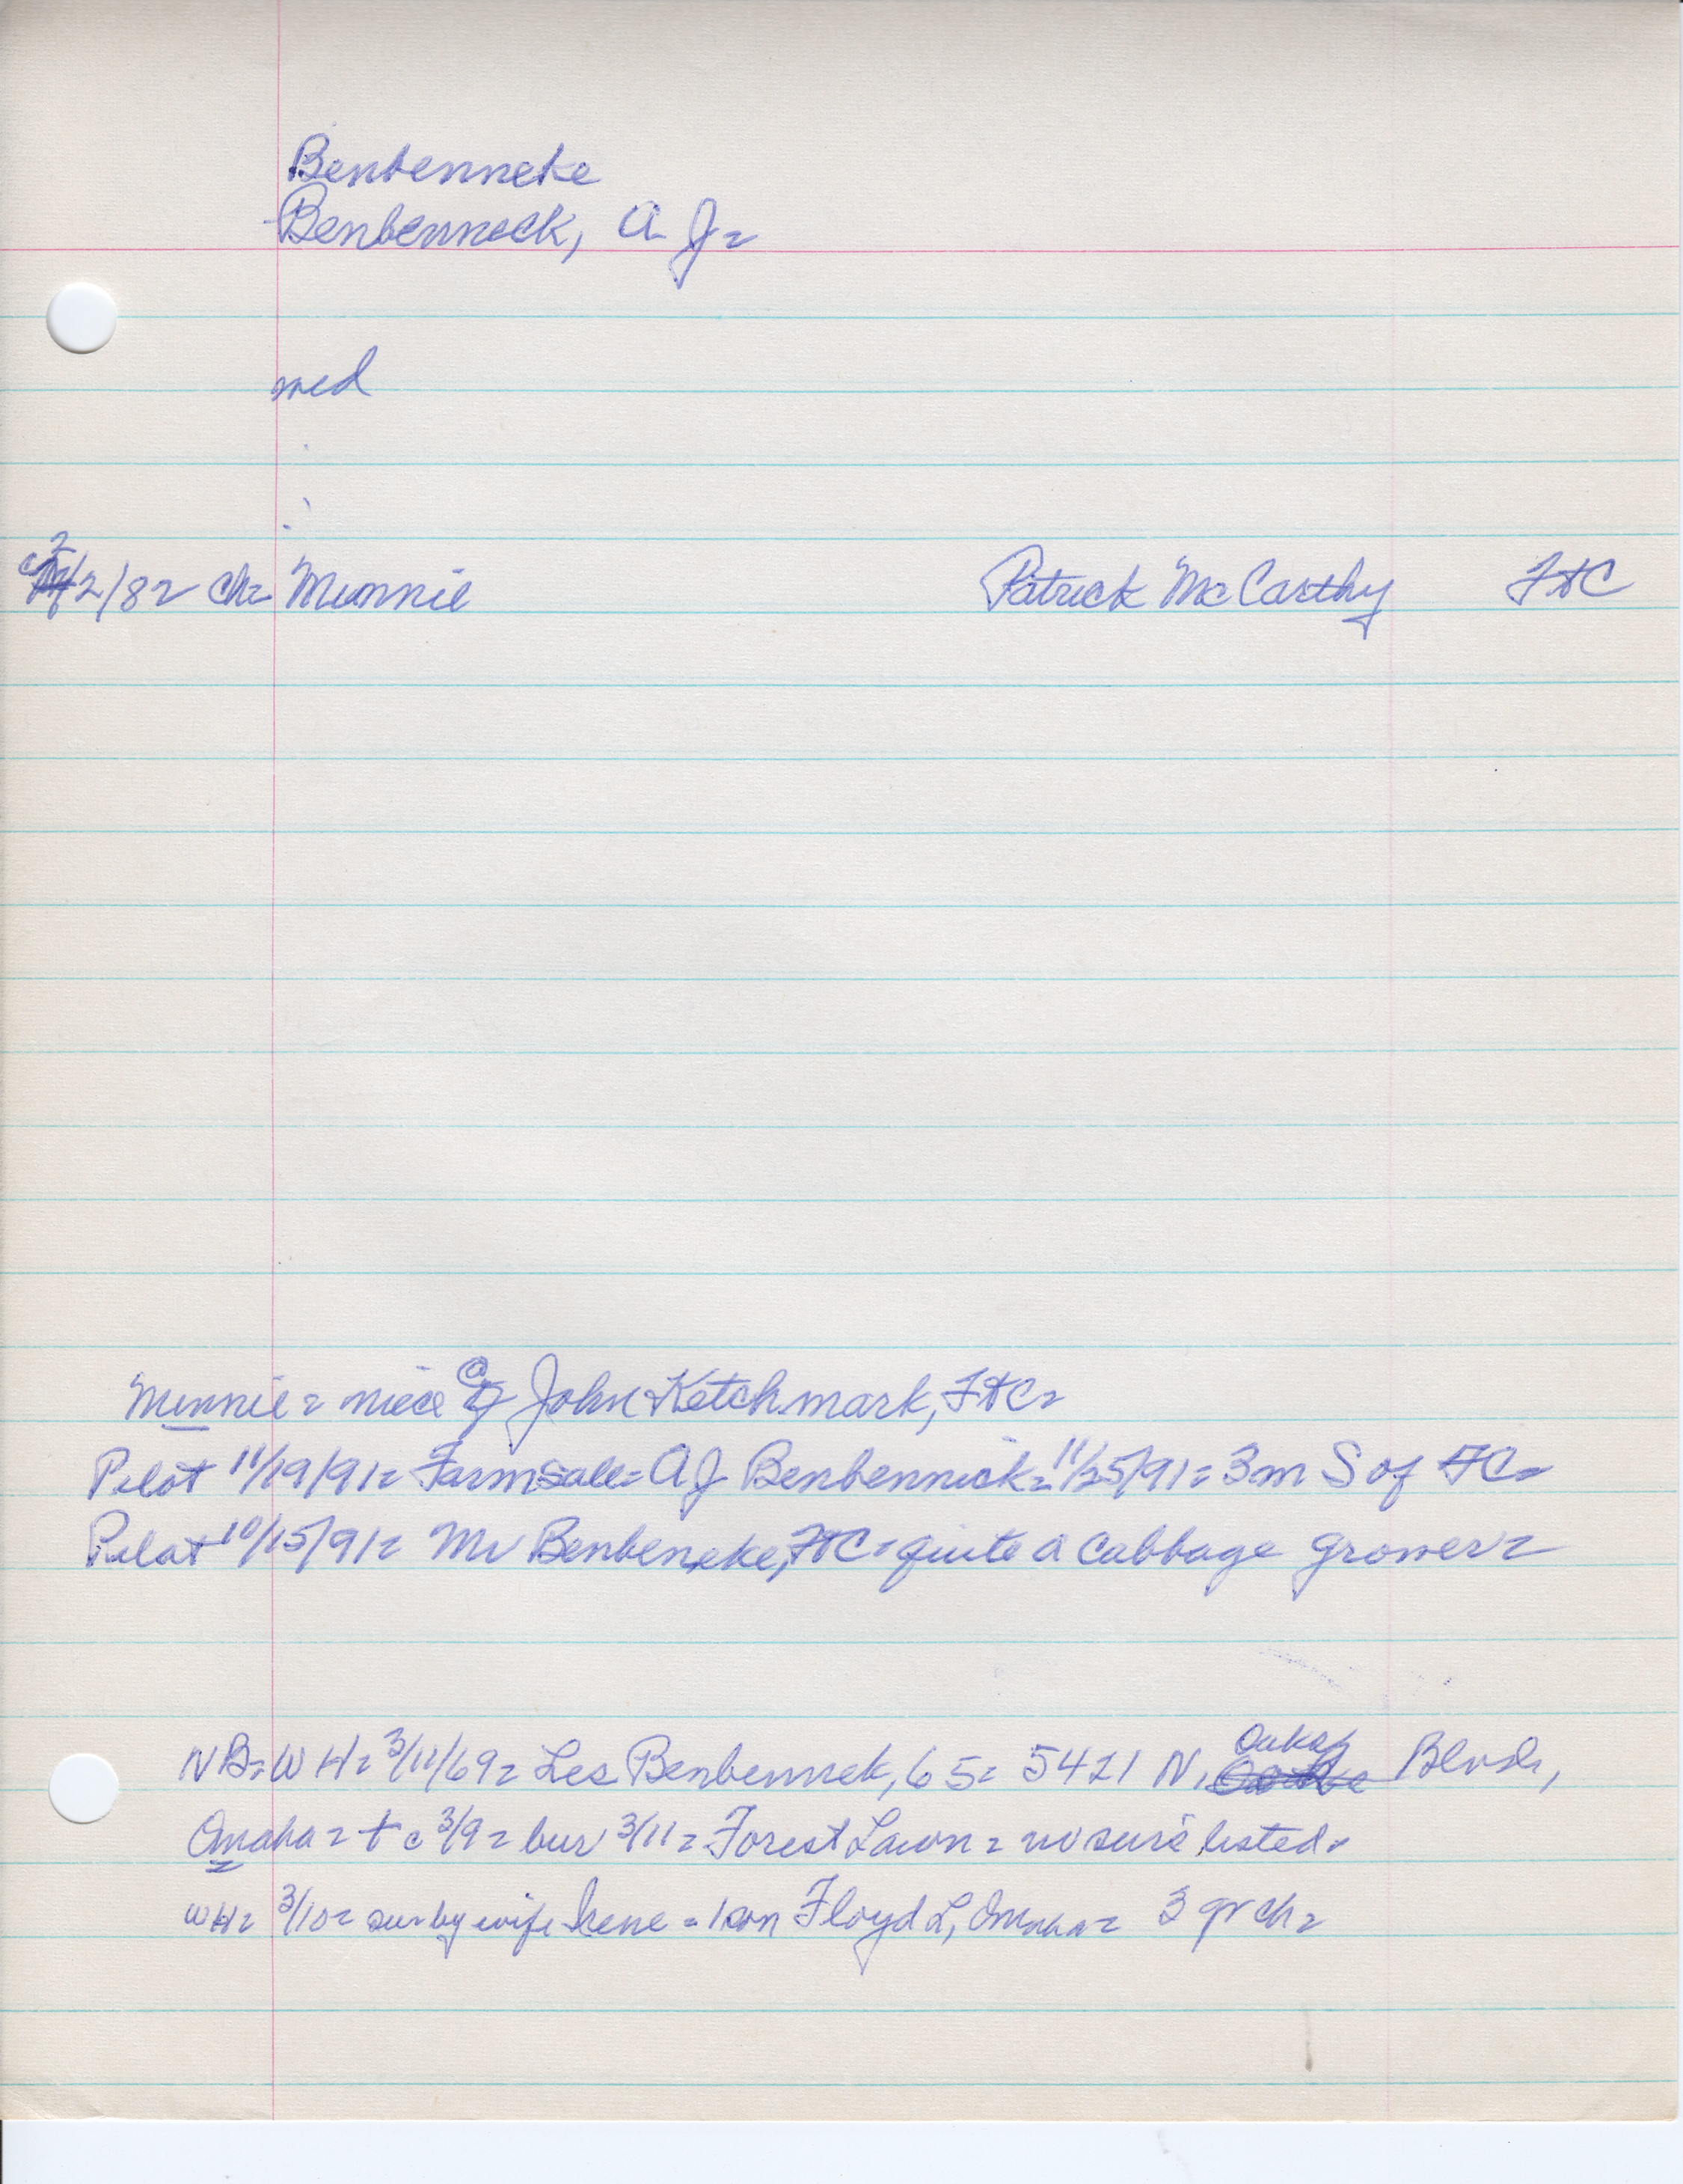 Benbenneke
Benbenneck, A J=
med
2/2/82 ch= Minnie Patrick McCarthy FtC
Minnie = niece of John Ketchmark, FtC=
Pilot 11/19/91= Farm sale= AJ Benbennick= 11/25/91= 3m S of FC=
Pilot 10/15/91= Mr Benbeneke, FtC= quite a cabbage grower=
NB= WH= 3/11/69= Les Benbennek, 65= 5421 N. Blvd,
Omaha = + c 3/9= bur 3/11= Forest Lawn = no surs listed=
WH= 3/10= sur by wife Irene = 1 son Floyd L, Omaha= 3 gr ch=